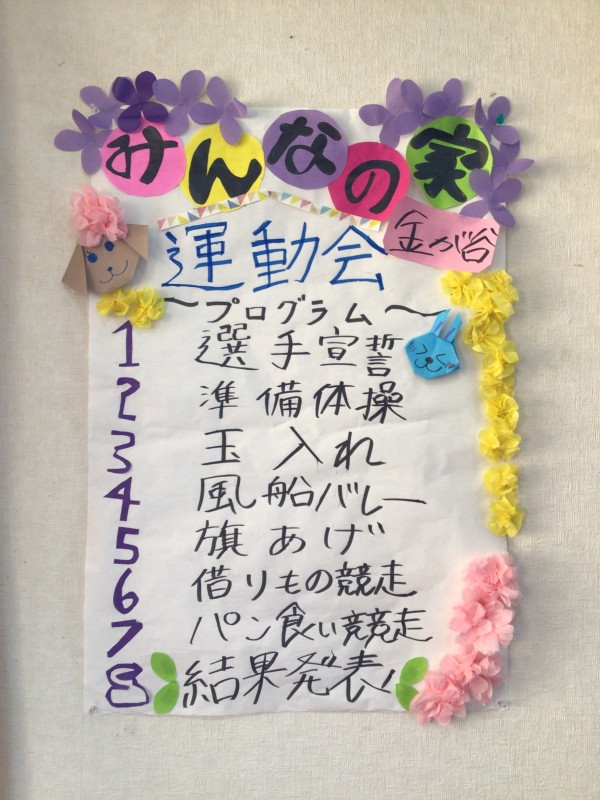 みんなの実
金が谷
運動会
～プログラム～
1 選手宣誓
2 準備体操
3 玉入れ
4 風船バレー
5 旗あげ
6 借りもの競走
7 パン食い競走
8 結果発表!